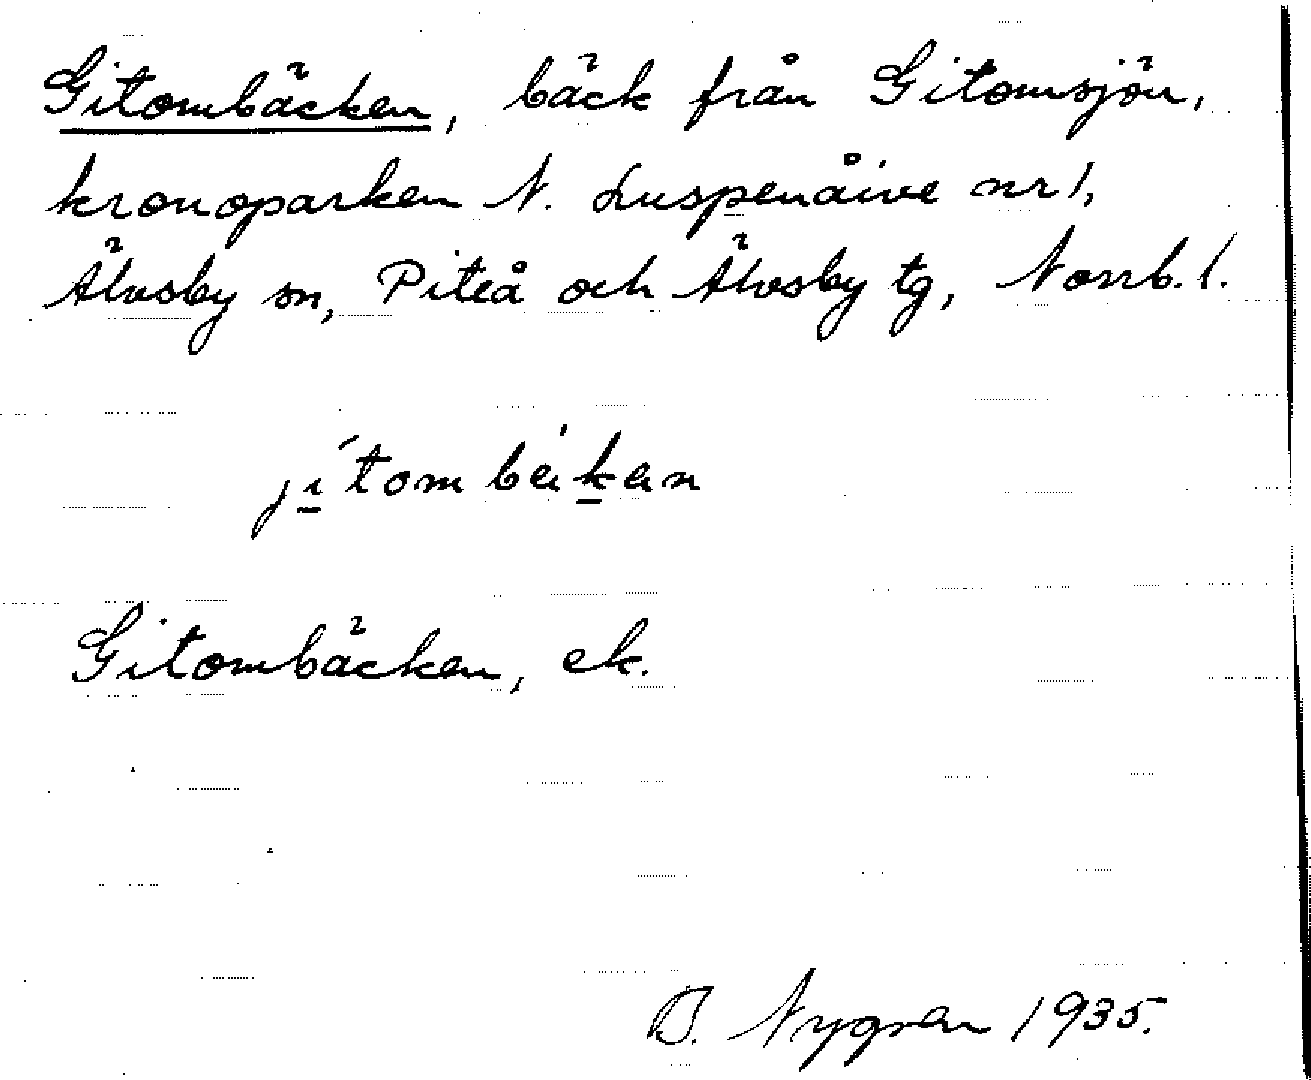 Gitombäcken, bäck från Gitomsjön,
kronoparken N. Luspenåive nr 1,
Älvsby sn, Piteå och Älvsby tg, Norrb. l.
jítombèkan
Gitombäcken, ek.
B. Nygren 1935.